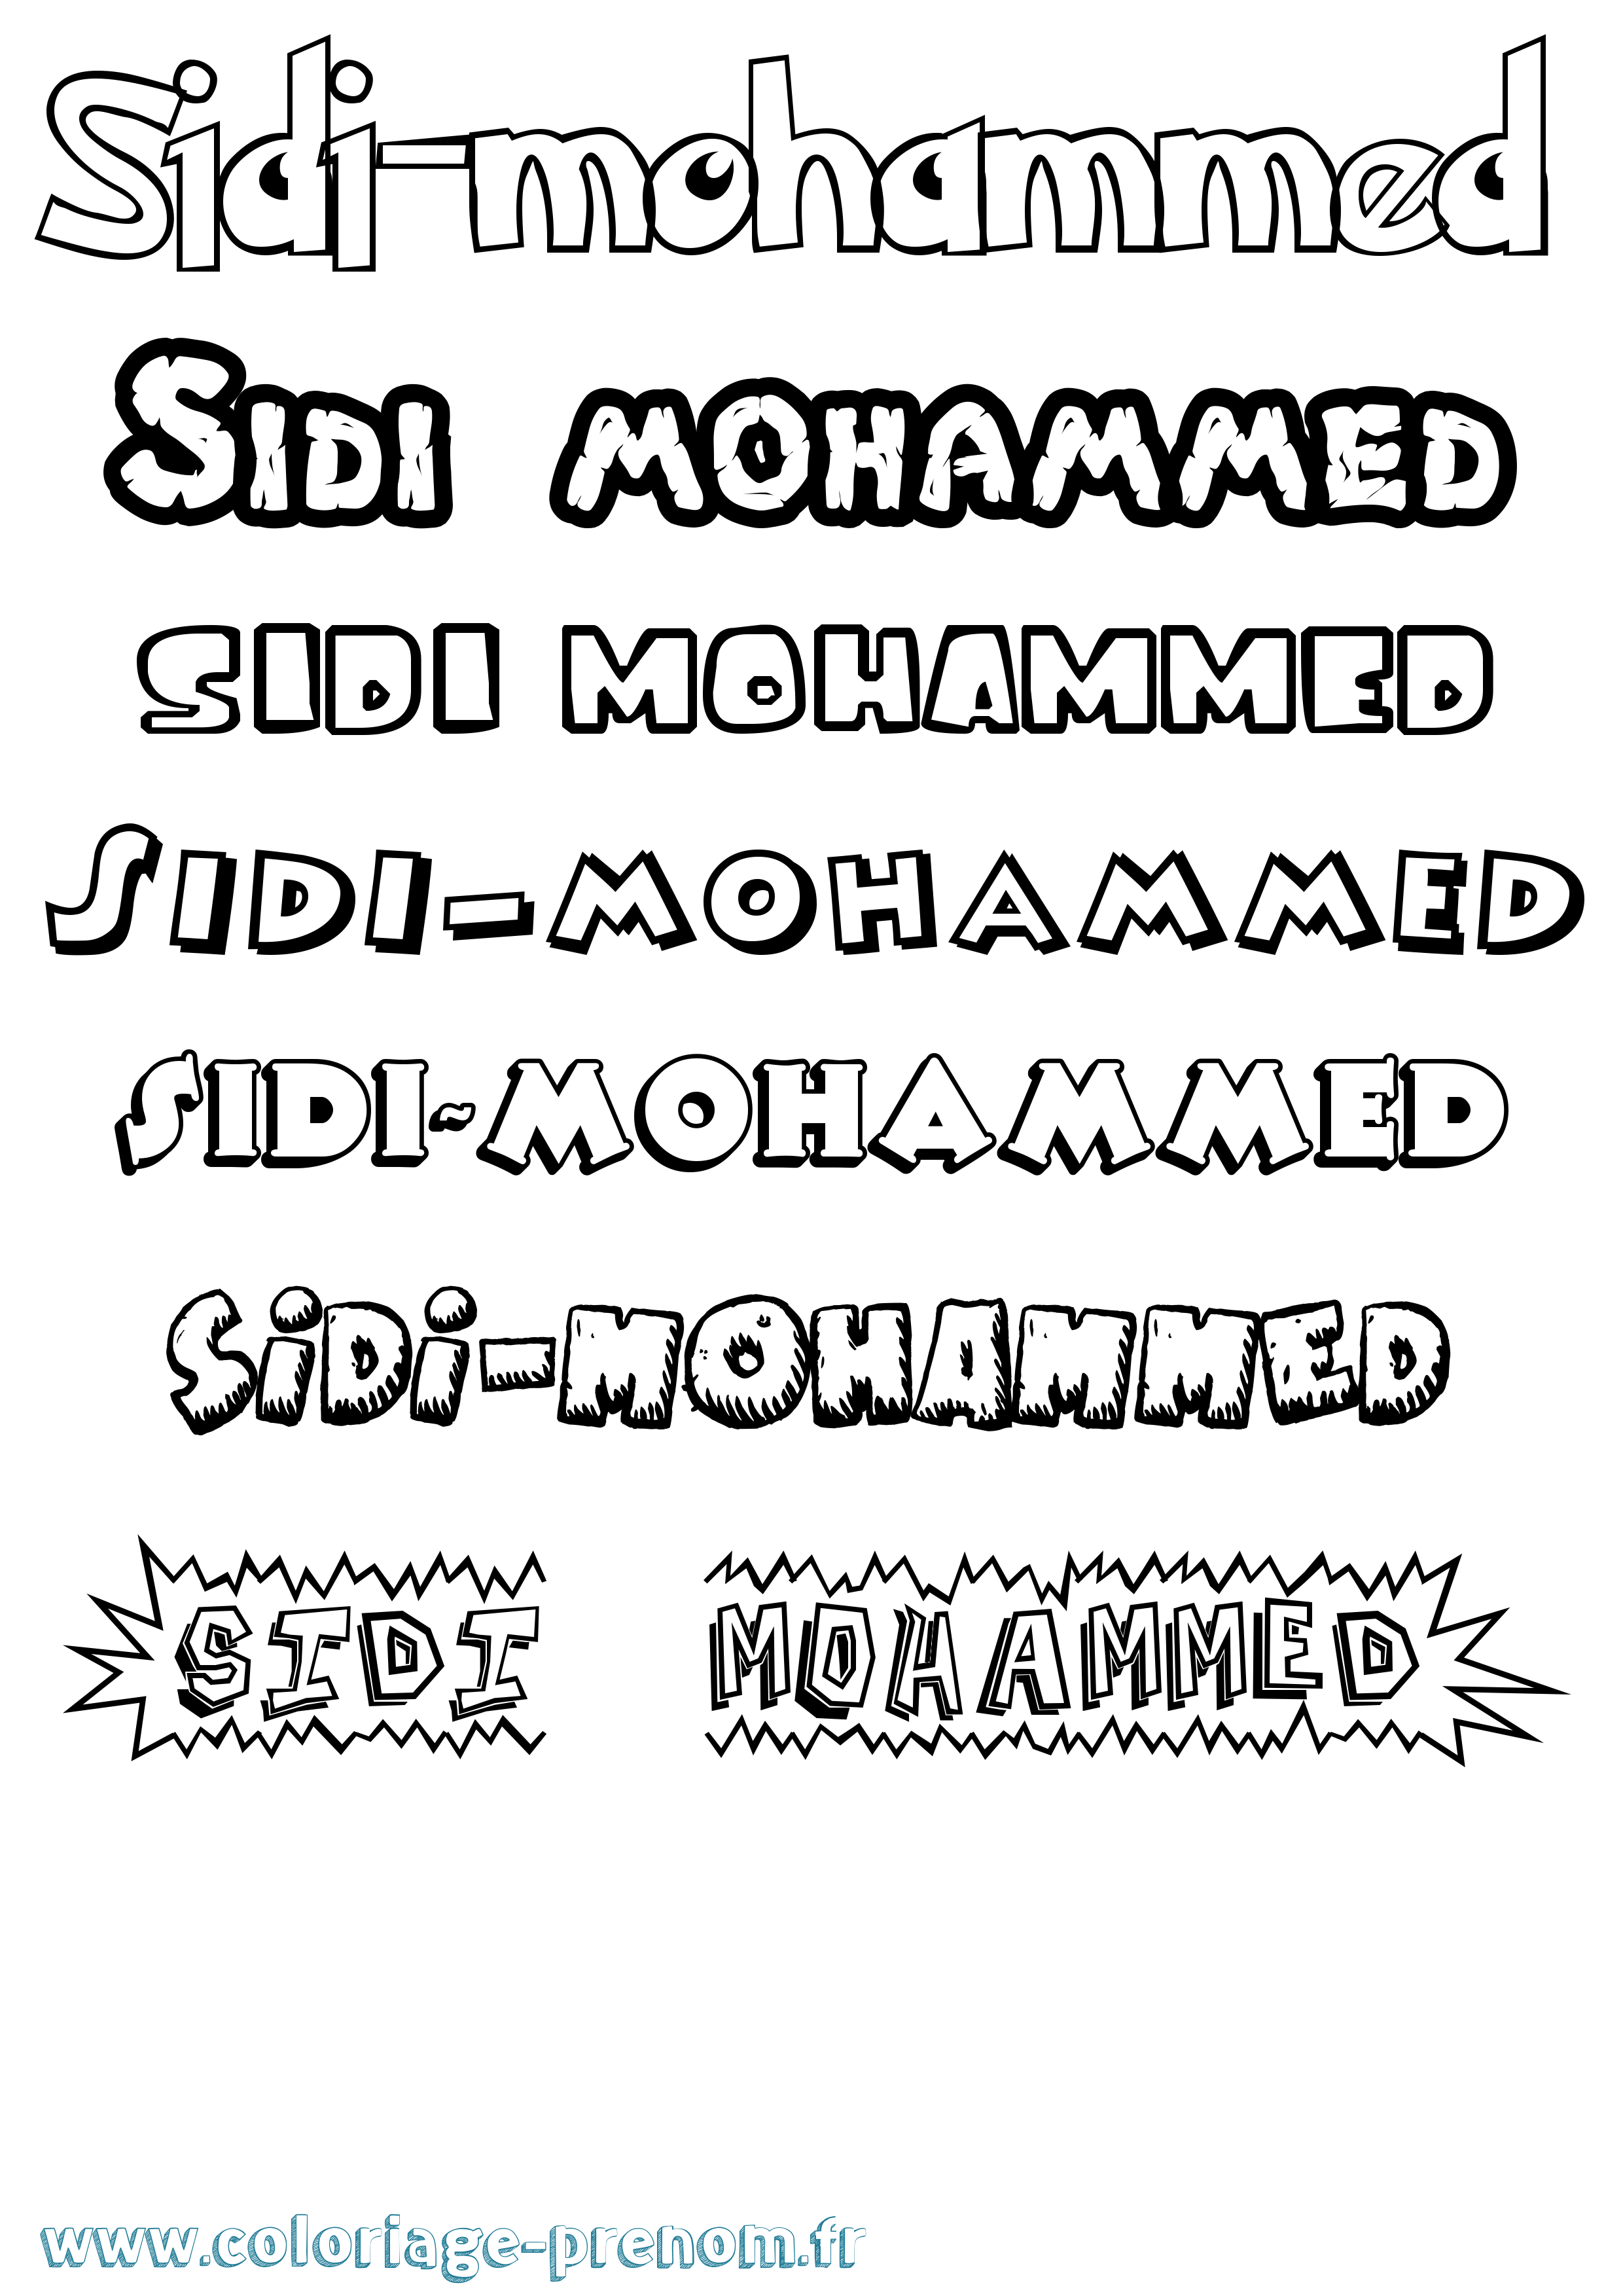 Sidi-mohammed
SIDI MOHAMMED
SIDI MOHAMMED
SIDI-MOHAMMED
SIDI-MOHAMMED
SiDi-MOHAMMED
SIDI MOHAMMED
www.coloriage-prenom.fr